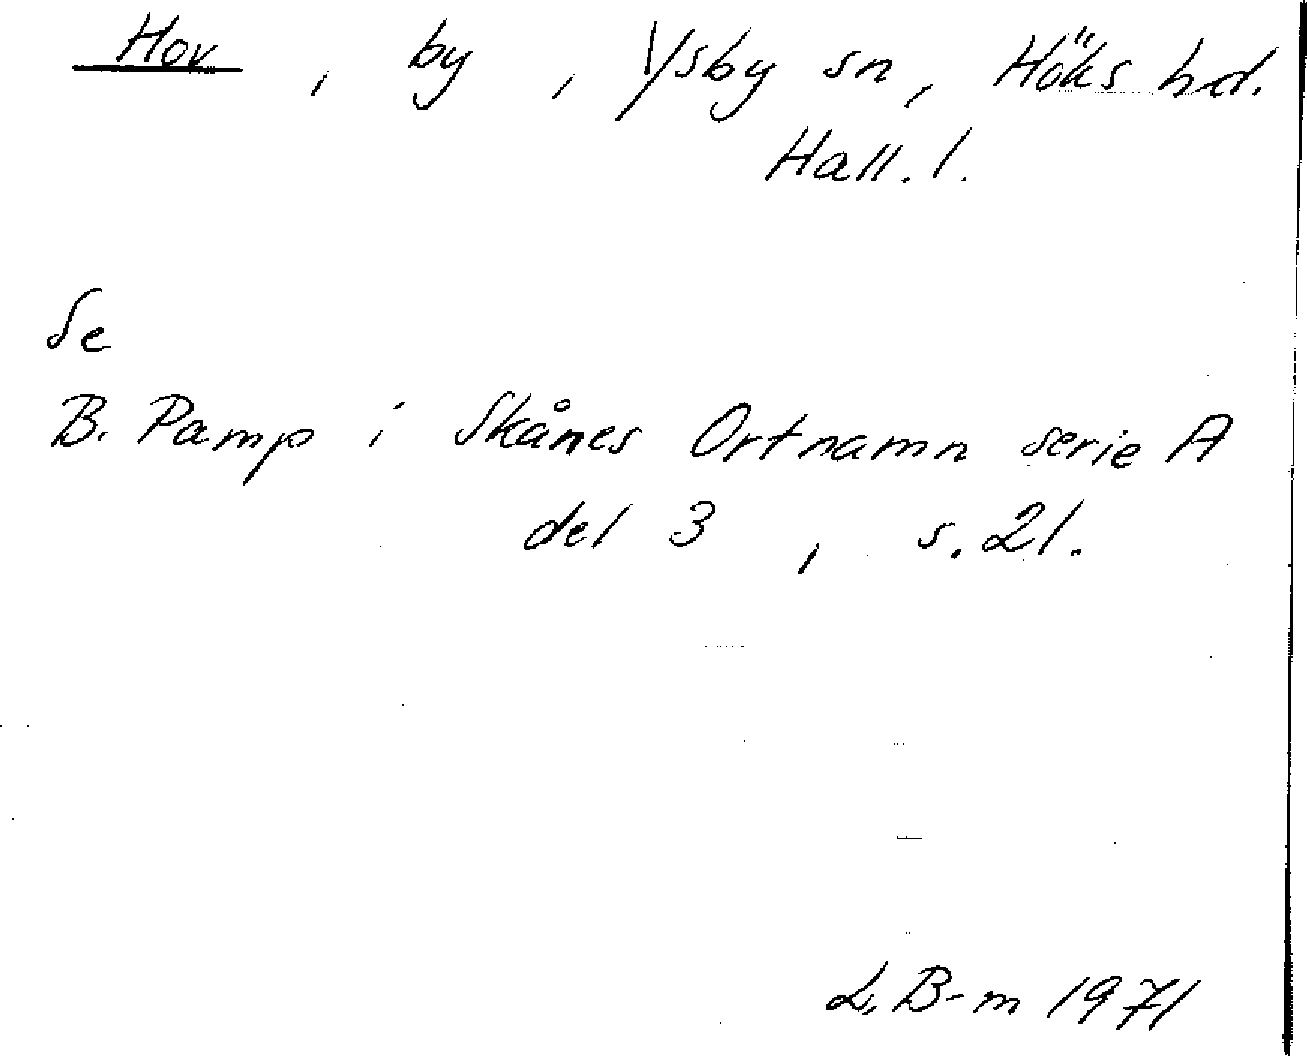 Hov, by, Ysby sn, Höks hd.
Hall. l.
Se
B. Pamp i Skånes Ortnamn serie A
del 3, s. 21.
L. B-m 1971